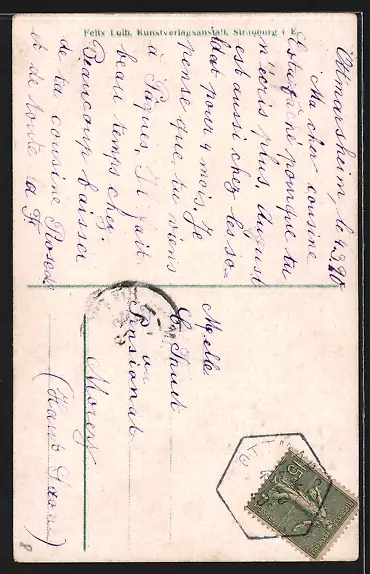 Felix Luib, Kunstverlagsanstalt, Strassburg i. E.
Ottmarsheim, le
Ma cher cousine
Es tu faché pourque tu
n'ecris plus. August
est aussi chez les so-
ldat pour 4 mois. Je
pense que tu viens
à Pâques. Il fait
beau temps chez.
Beaucoup baiser
de ta cousine
et de toute la
Melle
Pensionat
Morey
(Haute Saone)
15